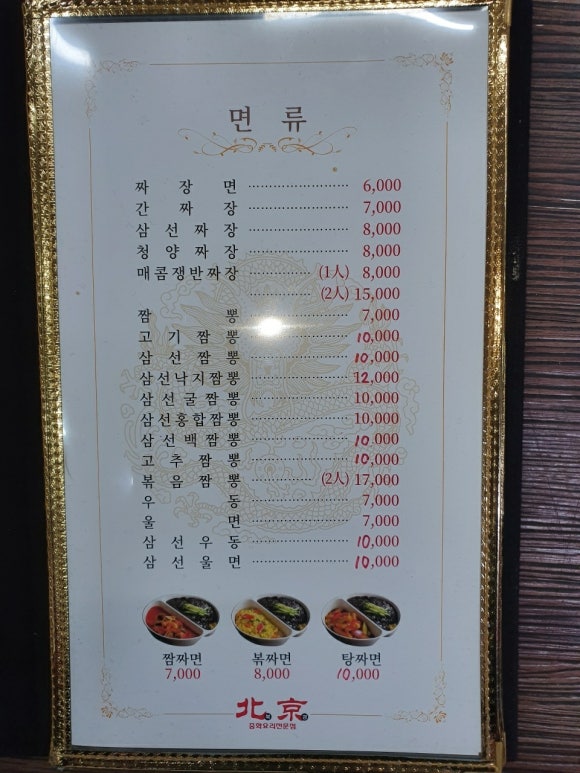 면 류
짜 장 면 6,000
간 짜 장 7,000
삼 선 짜 장 8,000
청 양 짜 장 8,000
매콤쟁반짜장 (1人) 8,000
(2人) 15,000
짬 뽕 7,000
고 기 짬 뽕 10,000
삼 선 짬 뽕 10,000
삼선낙지짬뽕 12,000
삼 선 굴 짬 뽕 10,000
삼선홍합짬뽕 10,000
삼 선 백 짬 뽕 10,000
고 추 짬 뽕 10,000
볶 음 짬 뽕 (2人) 17,000
우 동 7,000
울 면 7,000
삼 선 우 동 10,000
삼 선 울 면 10,000
짬짜면 볶짜면 탕짜면
7,000 8,000 10,000
北북 京경
중화요리전문점